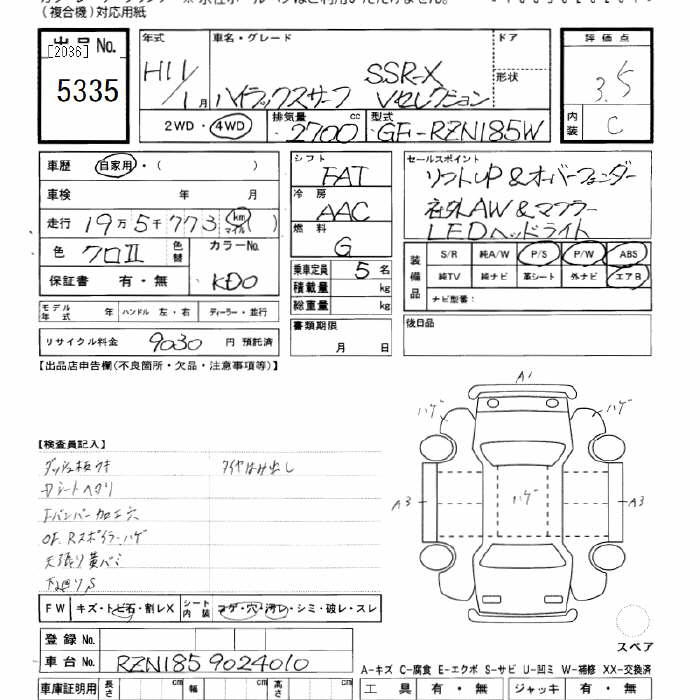 (複合機)対応用紙
出品 No.
[2036]
5335
年式
H11/1月
車名・グレード
ハイラックスサーフ SSR-X Vセレクション
ドア
形状
評価点
3.5
内装
C
2WD・4WD
排気量 2700 cc
型式 GF-RZN185W
車歴 自家用・( )
車検 年 月
走行 19万5千773 km マイル ( )
色 クロII 色替
カラーNo. KD0
保証書 有・無
モデル年式 年 ハンドル 左・右 ディーラー・並行
リサイクル料金 9030 円 預託済
シフト FAT
冷房 AAC
燃料 G
乗車定員 5 名
積載量 kg
総重量 kg
書類期限
月 日
セールスポイント
リフトUP&オーバーフェンダー
社外AW&マフラー
LEDヘッドライト
装備品
S/R 純A/W P/S P/W ABS
純TV 純ナビ 革シート 外ナビ エアB
ナビ型番:
後日品
【出品店申告欄(不良箇所・欠品・注意事項等)】
【検査員記入】
タイヤはみ出し
Dシートヘタリ
Fバンパー加工穴
OF、Rスポイラーハゲ
天張り黄バミ
下廻りS
A1
ハゲ
ハゲ
A3
ハゲ
A3
スペア
FW キズ・トビ石・割レX
シート内装 コゲ・穴・汚レ・シミ・破レ・スレ
登録 No.
車台 No. RZN185 9024010
A-キズ C-腐食 E-エクボ S-サビ U-凹ミ W-補修 XX-交換済
車庫証明用 長さ cm 幅 cm 高さ cm
工具 有・無 ジャッキ 有・無